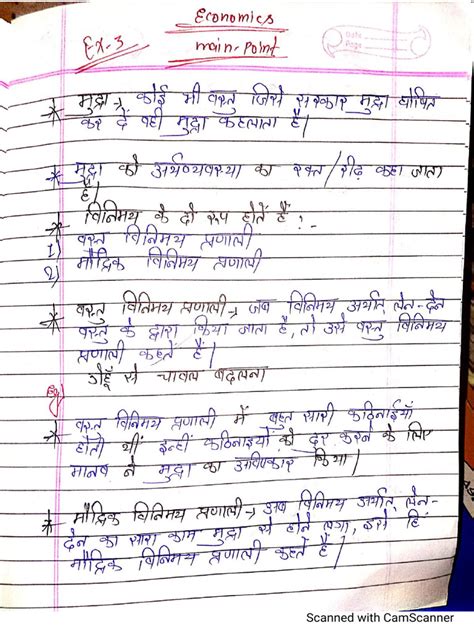 Economics
Ex-3
main-point
Date
Page
* मुद्रा → कोई भी वस्तु जिसे सरकार मुद्रा घोषित
कर दे वही मुद्रा कहलाता है।
* मुद्रा को अर्थव्यवस्था का रक्त/रीढ़ कहा जाता
है।
विनिमय के दो रूप होते हैं :-
1) वस्तु विनिमय प्रणाली
2) मौद्रिक विनिमय प्रणाली
* वस्तु विनिमय प्रणाली → जब विनिमय अर्थात् लेन-देन
वस्तु के द्वारा किया जाता है, तो उसे वस्तु विनिमय
प्रणाली कहते हैं।
Eg) गेहूँ से चावल बदलना
* वस्तु विनिमय प्रणाली में बहुत सारी कठिनाईयाँ
होती थीं इन्हीं कठिनाइयों को दूर करने के लिए
मानव ने मुद्रा का अविष्कार किया।
* मौद्रिक विनिमय प्रणाली → जब विनिमय अर्थात् लेन-
देन का सारा काम मुद्रा से होने लगा, इसे हि
मौद्रिक विनिमय प्रणाली कहते हैं।
Scanned with CamScanner